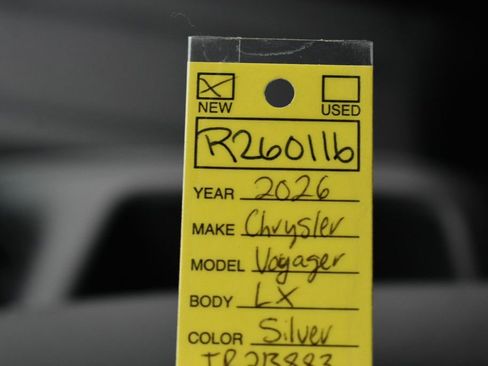 NEW USED
R260116
YEAR 2026
MAKE Chrysler
MODEL Voyager
BODY LX
COLOR Silver
TR213883